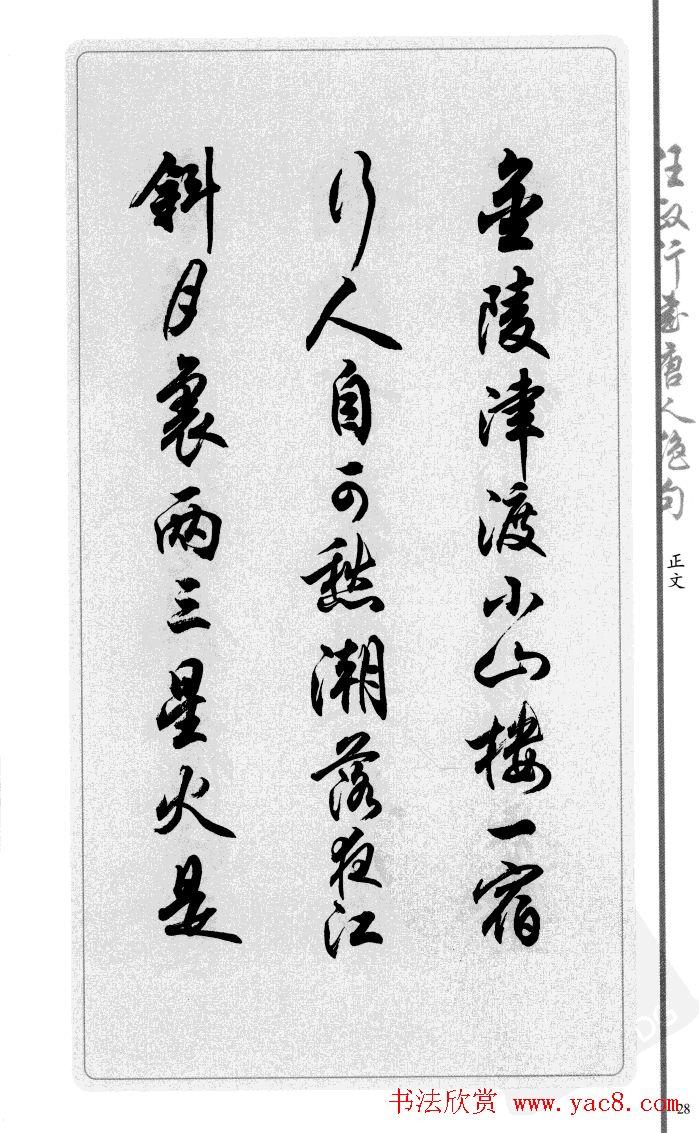 金陵津渡小山樓一宿
行人自可愁潮落夜江
斜月裏兩三星火是
任政行書唐人絶句
正文
书法欣赏 www.yac8.com
28